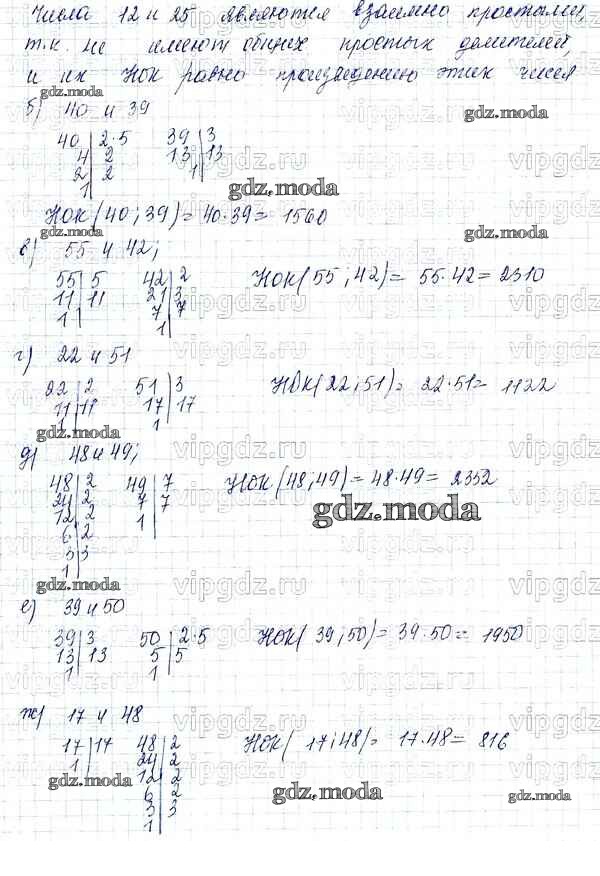 Числа 12 и 25 являются взаимно простыми,
т.к. не имеют общих простых делителей,
и их НОК равно произведению этих чисел
gdz.moda
б) 40 и 39
gdz.moda
40 | 2·5 39 | 3
4 | 2 13 | 13
2 | 2 1 |
1 |
gdz.moda
НОК (40; 39) = 40·39 = 1560
gdz.moda
gdz.moda
в) 55 и 42;
55 | 5 42 | 2
11 | 11 21 | 3
1 | 7 | 7
1 |
НОК (55; 42) = 55·42 = 2310
г) 22 и 51
22 | 2 51 | 3
11 | 11 17 | 17
1 | 1 |
НОК (22; 51) = 22·51 = 1122
gdz.moda
gdz.moda
д) 48 и 49;
48 | 2 49 | 7
24 | 2 7 | 7
12 | 2 1 |
6 | 2
3 | 3
1 |
НОК (48; 49) = 48·49 = 2352
gdz.moda
gdz.moda
gdz.moda
е) 39 и 50
39 | 3 50 | 2·5
13 | 13 5 | 5
1 | 1 |
НОК (39; 50) = 39·50 = 1950
gdz.moda
ж) 17 и 48
17 | 17 48 | 2
1 | 24 | 2
12 | 2
6 | 2
3 | 3
1 |
НОК (17; 48) = 17·48 = 816
gdz.moda
gdz.moda
gdz.moda
vipgdz.ru